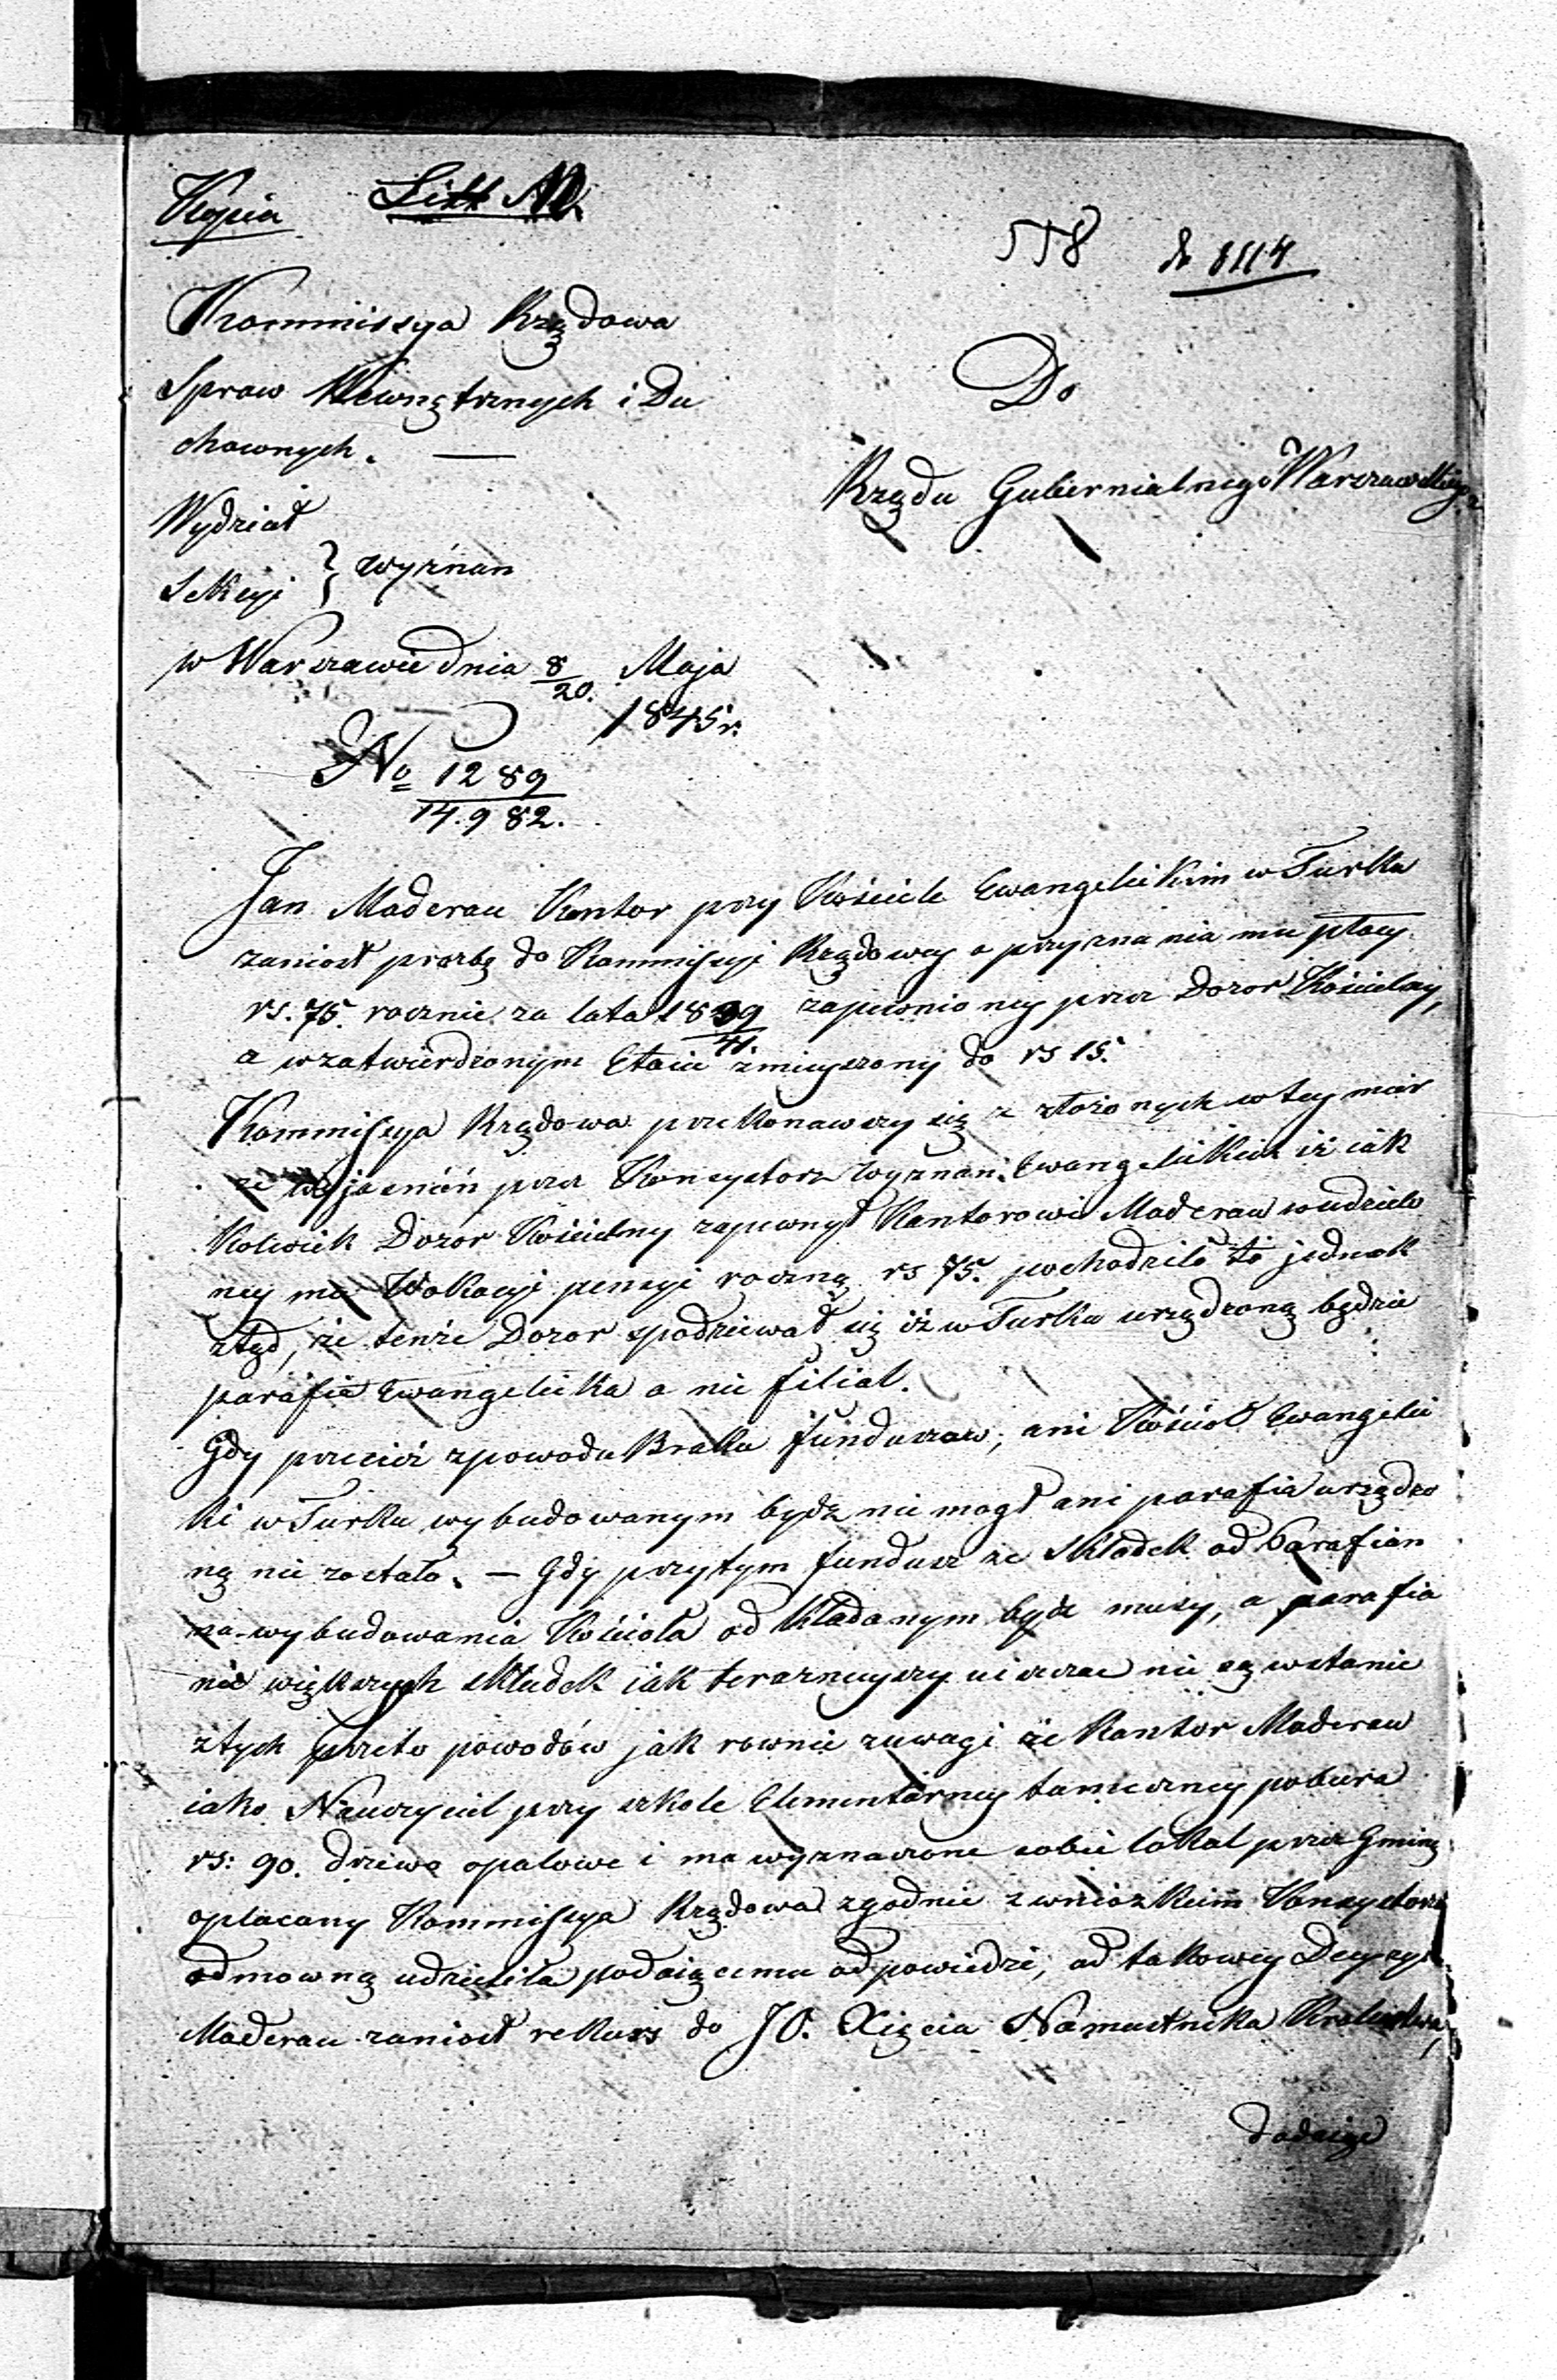 Kopia Litt
558 do 8114
Kommissya Rządowa
Spraw Wewnętrznych i Du
chownych. —
Do
Rządu Gubernialnego Warszawskiego
Wydział
Sekcyi } wyznan
w Warszawie dnia 8/20. Maja
1845 r.
No 1289
14.982.
Jan Maderau Kantor przy Kościele Ewangelickim w Turku
zaniosł prozbę do Kommissyi Rządowey o przyznania mu płacy
rs. 75. rocznie za lata 1839/41. zapewnioney przez Dozor Kościelny,
a w zatwierdzonym Etacie zmieyszony do rs 15.
Kommissya Rządowa przekonawszy się z złożonych w tey mier
ze wyjasnień przez Konsystorz wyznań Ewangelickich iż iak
kolwiek Dozor Kościelny zapewnył Kantorowi Maderau w udzielo
ney mu Wokacyi pensyi roczną rs 75. pochodziło to jednak
ztąd, że tenże Dozor spodziewał się iż w Turku urządzoną będzie
parafia Ewangelicka a nie filiał.
Gdy przecież z powodu Braku funduszow, ani Kościoł Ewangelic
ki w Turku wybudowanym bydz nie mogł ani parafia urządzo
ną nie zostało. — Gdy przytym fundusz ze składek od Parafian
na wybudowania Kościoła od kładanym bydz musi, a parafia
nie większych składek iak terazneyszy uiszczac nie są w stanie
z tych przeto powodów jak rownie z uwagi że Kantor Maderau
iako Nauczyciel przy szkole Elementarney tameczney pobiera
rs: 90. drzewo opałowe i ma wyznaczone sobie lokal przez Gminę
opłacany Kommissya Rządowa zgodnie z wnioskiem Konsystorza
odmowną udzieliła podaiącemu odpowiedzi, od takowey Decyzyi
Maderau zaniosł rekurs do JO. Xięcia Namiestnika Krolestwa,
dodaiąc